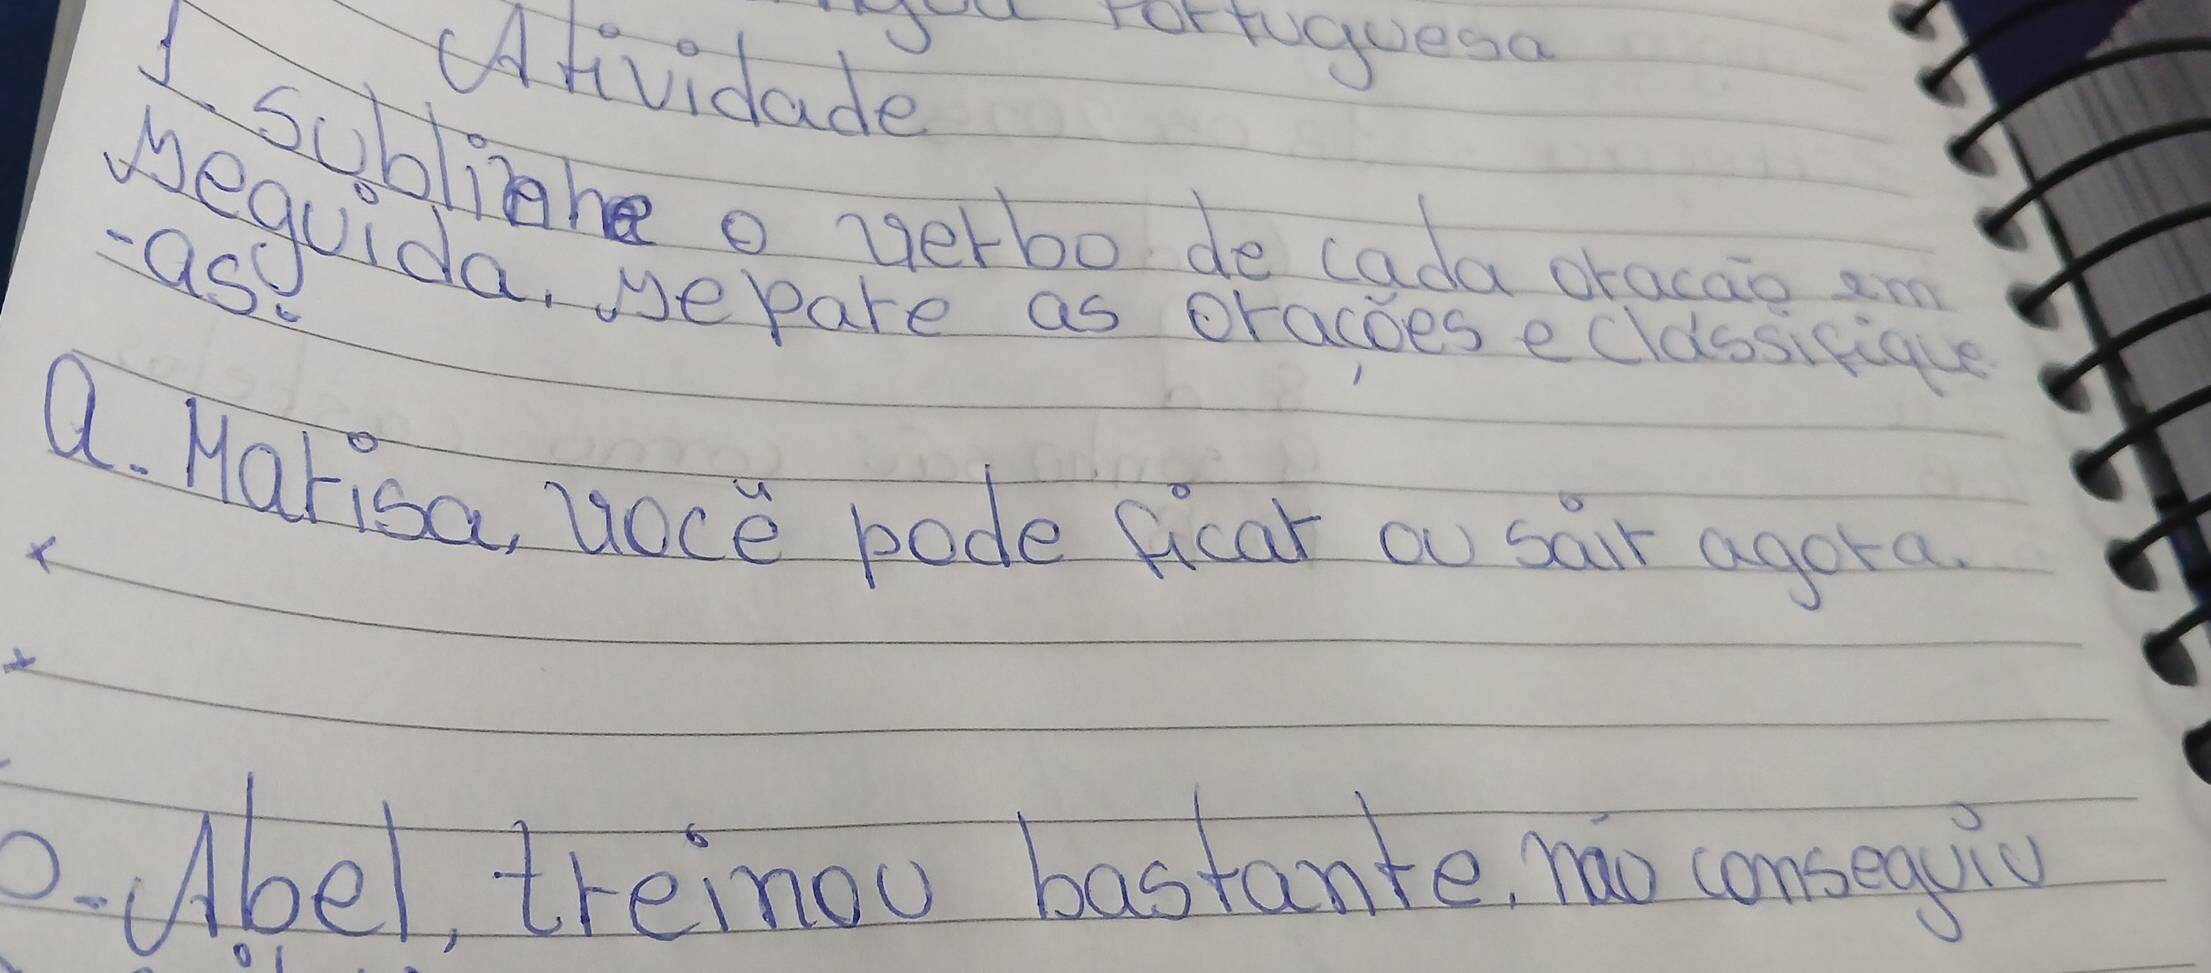 Portuguesa
Atividade
1. Sublinhe o verbo de cada oração em
seguida, separe as orações e classifique
-as:
a. Marisa, você pode ficar ou sair agora.
*
*
Abel, treinou bastante, não conseguiu